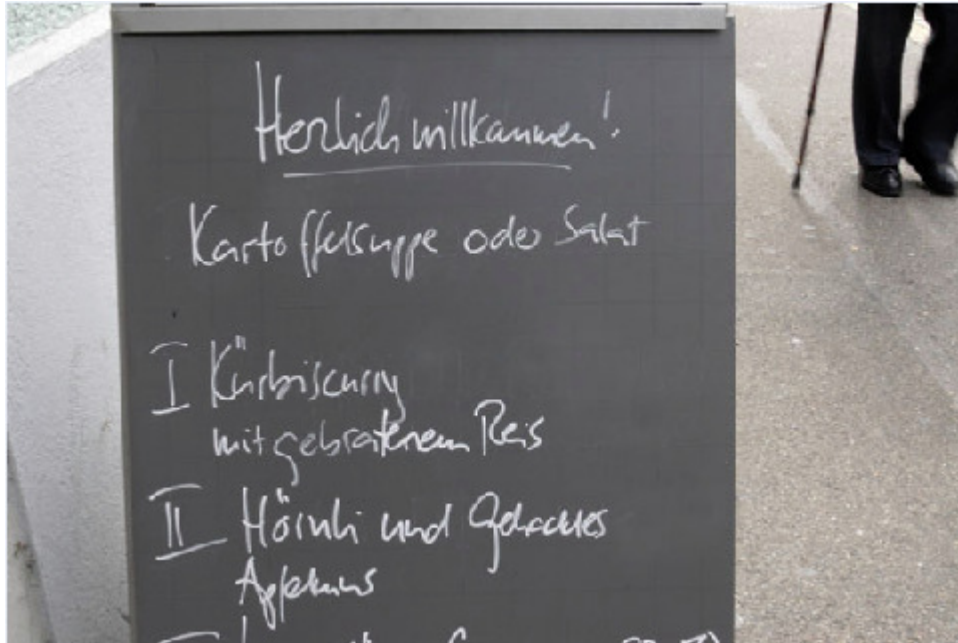 Herzlich willkommen!
Kartoffelsuppe oder Salat
I Kürbiscurry
mit gebratenem Reis
II Hörnli und Gehacktes
Apfelmus
III